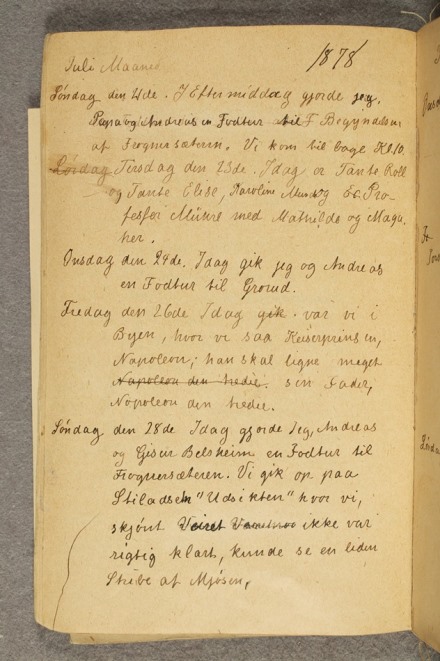 Juli Maaned
1878
Søndag den 21de. I Eftermiddag gjorde jeg,
Papa og Andreas en Fodtur til Begyndelsen
af Frognersæteren. Vi kom til bage Kl 10.
Lørdag Tirsdag den 23de. Idag er Tante Roll
og Tante Elise, Karoline og Pro-
fessor med Mathilde og Maga
her.
Onsdag den 24de. Idag gik jeg og Andreas
en Fodtur til Grorud.
Fredag den 26de Idag gik var vi i
Byen, hvor vi saa Keiserprinsen,
Napoleon; han skal ligne meget
Napoleon den tredie. sin Fader,
Napoleon den tredie.
Søndag den 28de Idag gjorde Jeg, Andreas
og Gisur Belsheim en Fodtur til
Frognersæteren. Vi gik op paa
Stiladsen "Udsikten" hvor vi,
skjónt Veiret ikke var
rigtig klart, kunde se en liden
Stribe af Mjøsen,